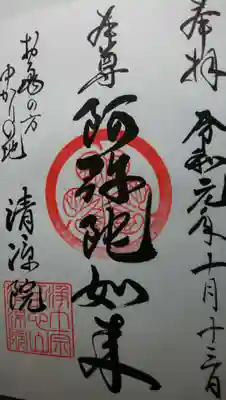 奉拝
令和元年十一月十三日
本尊
阿弥陀如来
お亀の方
ゆかりの地
清涼院
浄土宗